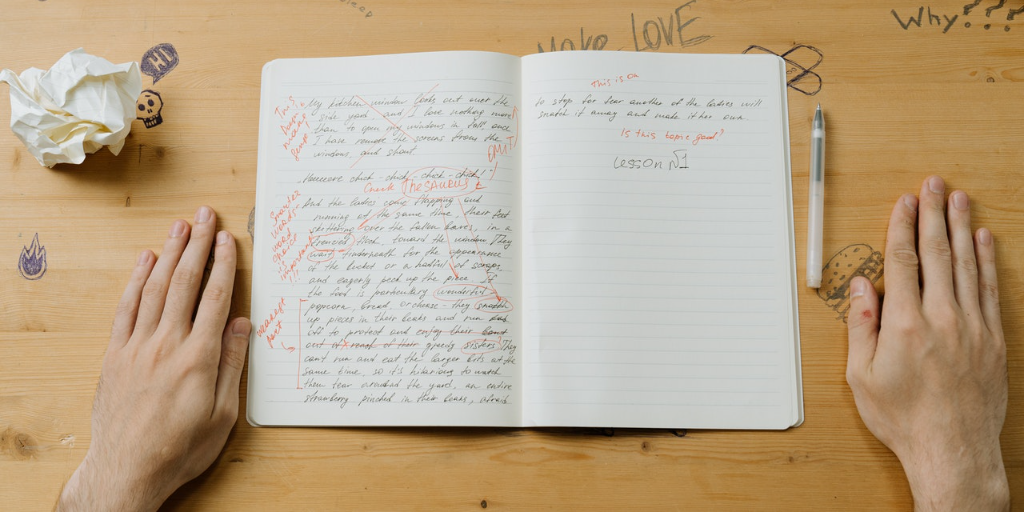 HI
MAKE LOVE
Why???
My kitchen window looks out over the
side yard, and I love nothing more
than to open my windows in fall, once
I have remove the screens from the
windows, and shout.
chick-chick-chick-chick!
Check Thesaurus
And the ladies come flapping and
running at the same time, their feet
skittering over the fallen leaves, in a
frenzied flock, toward the window. They
wait underneath for the appearance
of the bucket or a handful of scraps
and eagerly pick up the piece. If
the food is particulary wonderful
popcorn, bread, or cheese - they snatch
up pieces in their beaks and run
off to protect and enjoy their bount
out of reach of their greedy sisters. They
cant run and eat the larger bits at the
same time, so it's hilarious to watch
them tear around the yard, an entire
strawberry pinched in their beaks, afraid
OMIT
words
word
choice
important
!!
part
This is on
to stop for fear another of the ladies will
snatch it away and make it her own.
Is this topic good?
Lesson №1